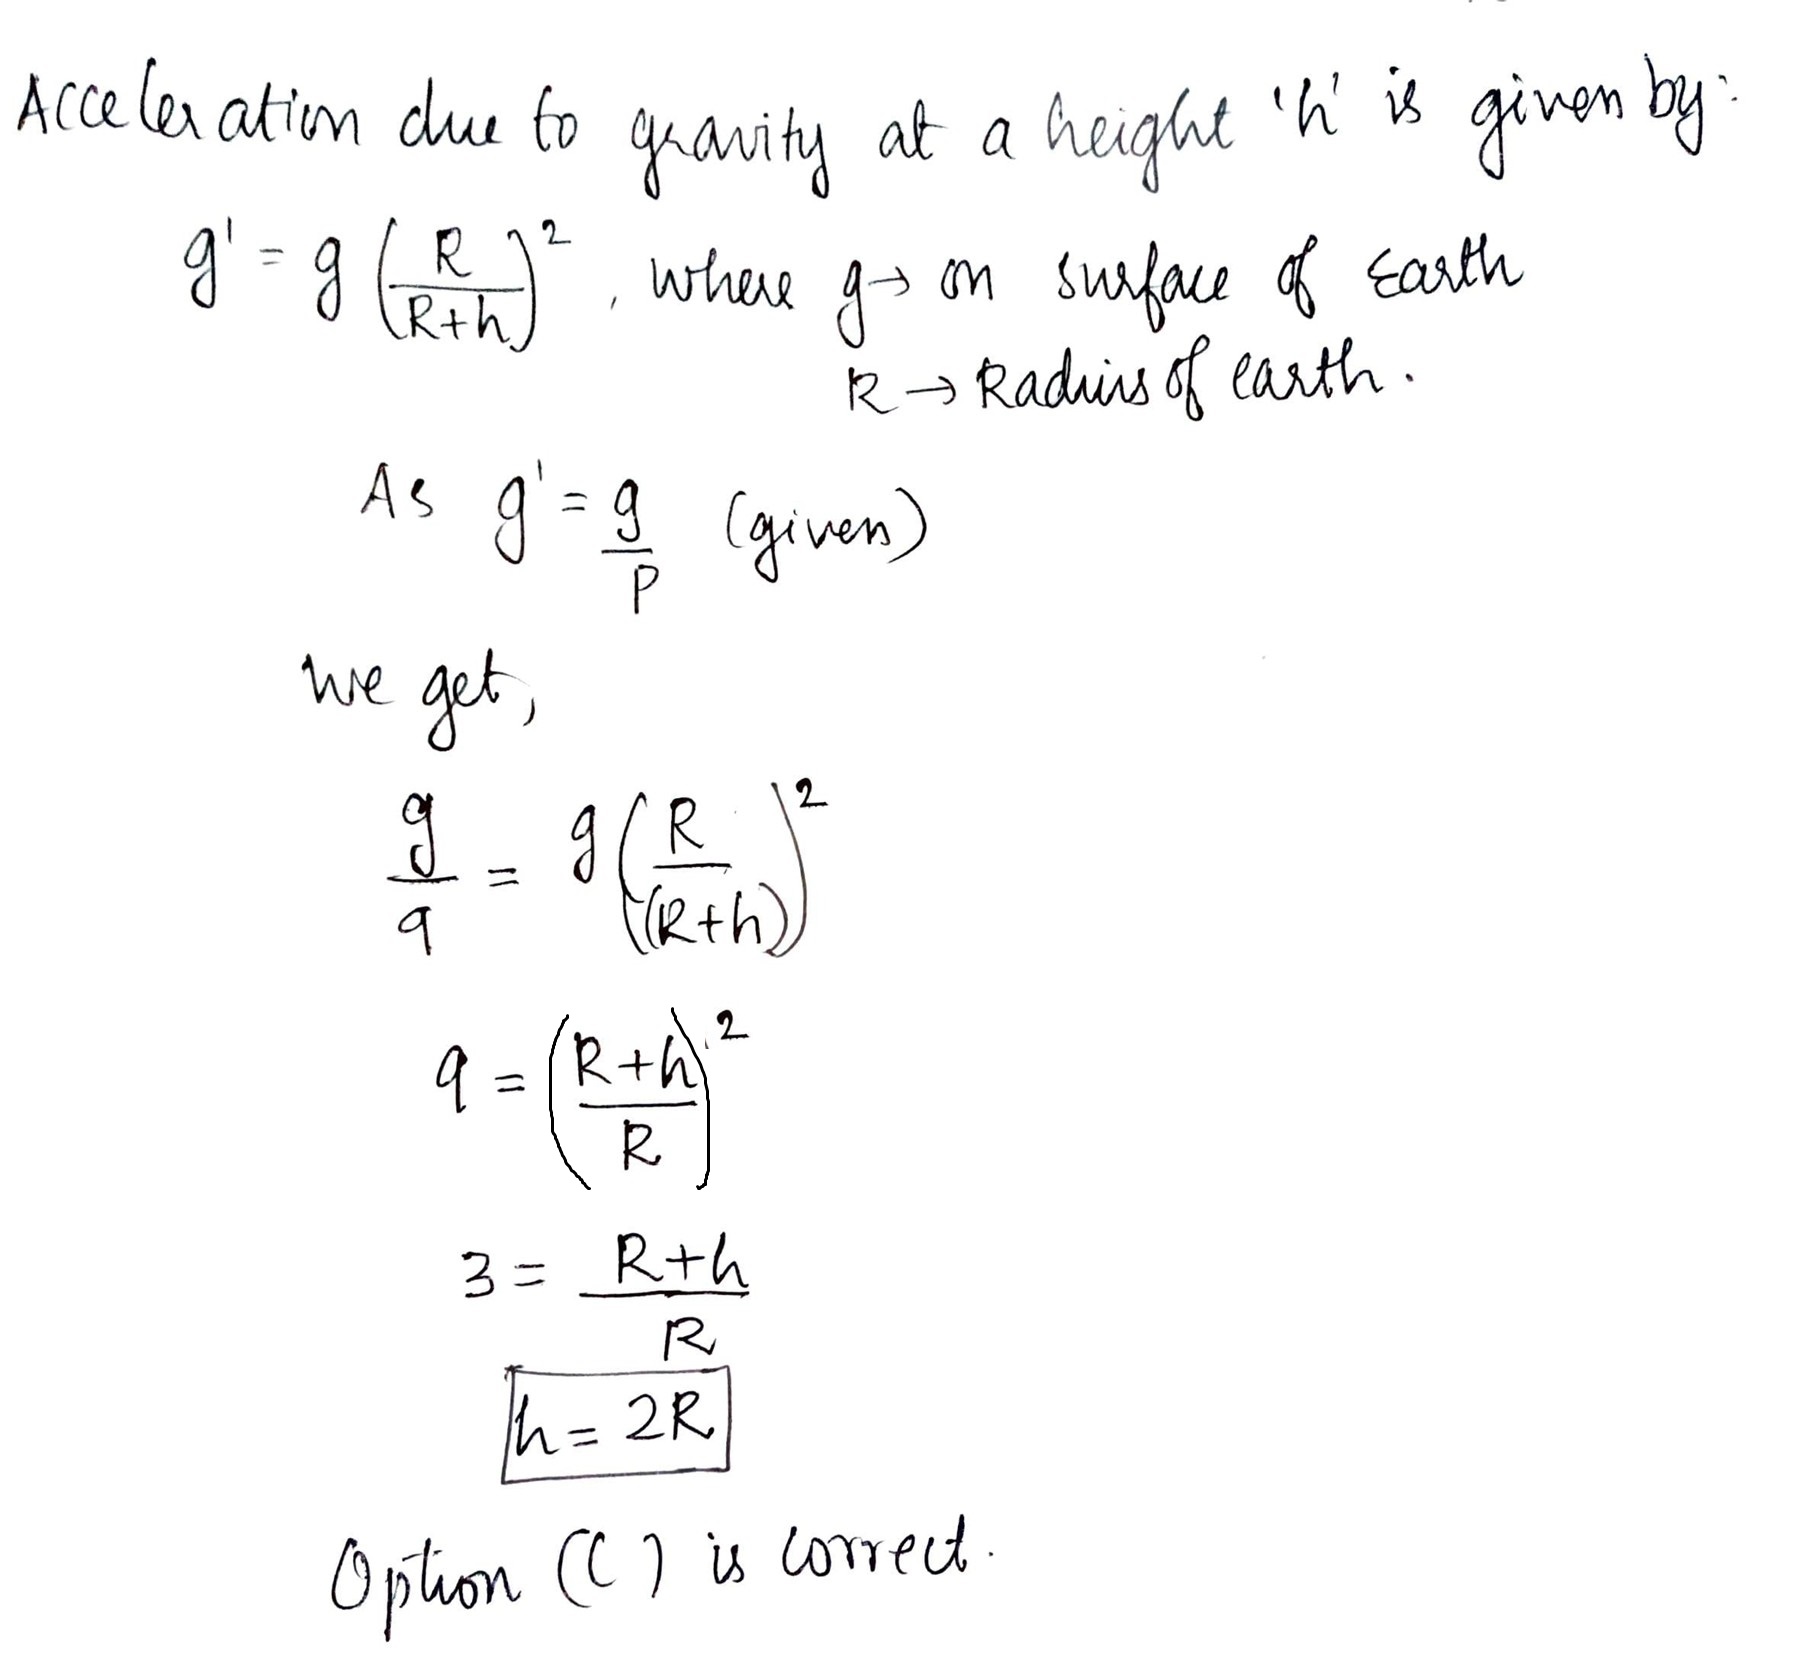 Acceleration due to gravity at a height 'h' is given by:
g' = g (R/(R+h))², where g → on surface of Earth
R → Radius of earth.
As g' = g/p (given)
we get,
g/9 = g (R/(R+h))²
9 = ((R+h)/R)²
3 = (R+h)/R
h = 2R
Option (C) is correct.